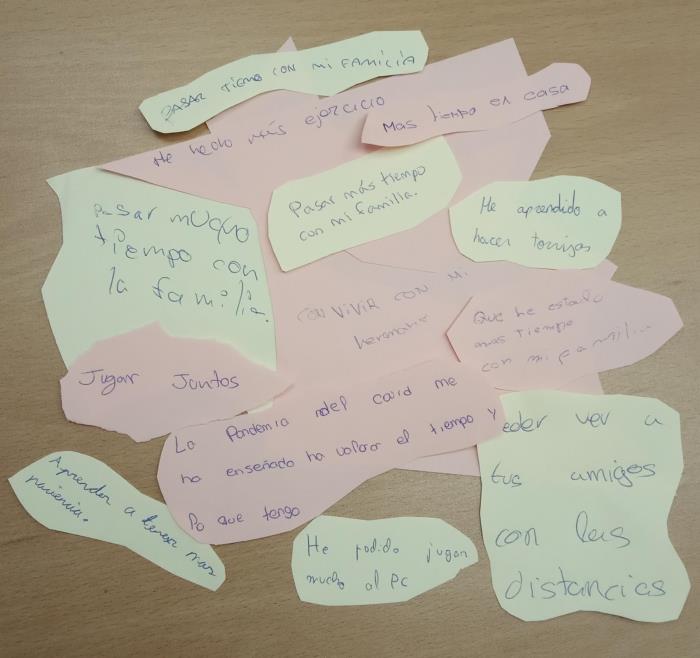 PASAR TIEMO CON MI FAMILIA
He hecho más ejercicio
Mas tiempo en casa
Pasar más tiempo
con mi familia.
He aprendido a
hacer torrijas
Pasar muqho
tiempo con
la familia.
CONVIVIR CON MI
hermano
Que he estado
mas tiempo
con mi famili...
Jugar Juntos
La Pandemia del covid me
ha enseñado ha valorar el tiempo y
Po que tengo
eder ver a
tus amigos
con las
distancias
Aprender a tener mas
paciencia.
He podido jugar
mucho al PC